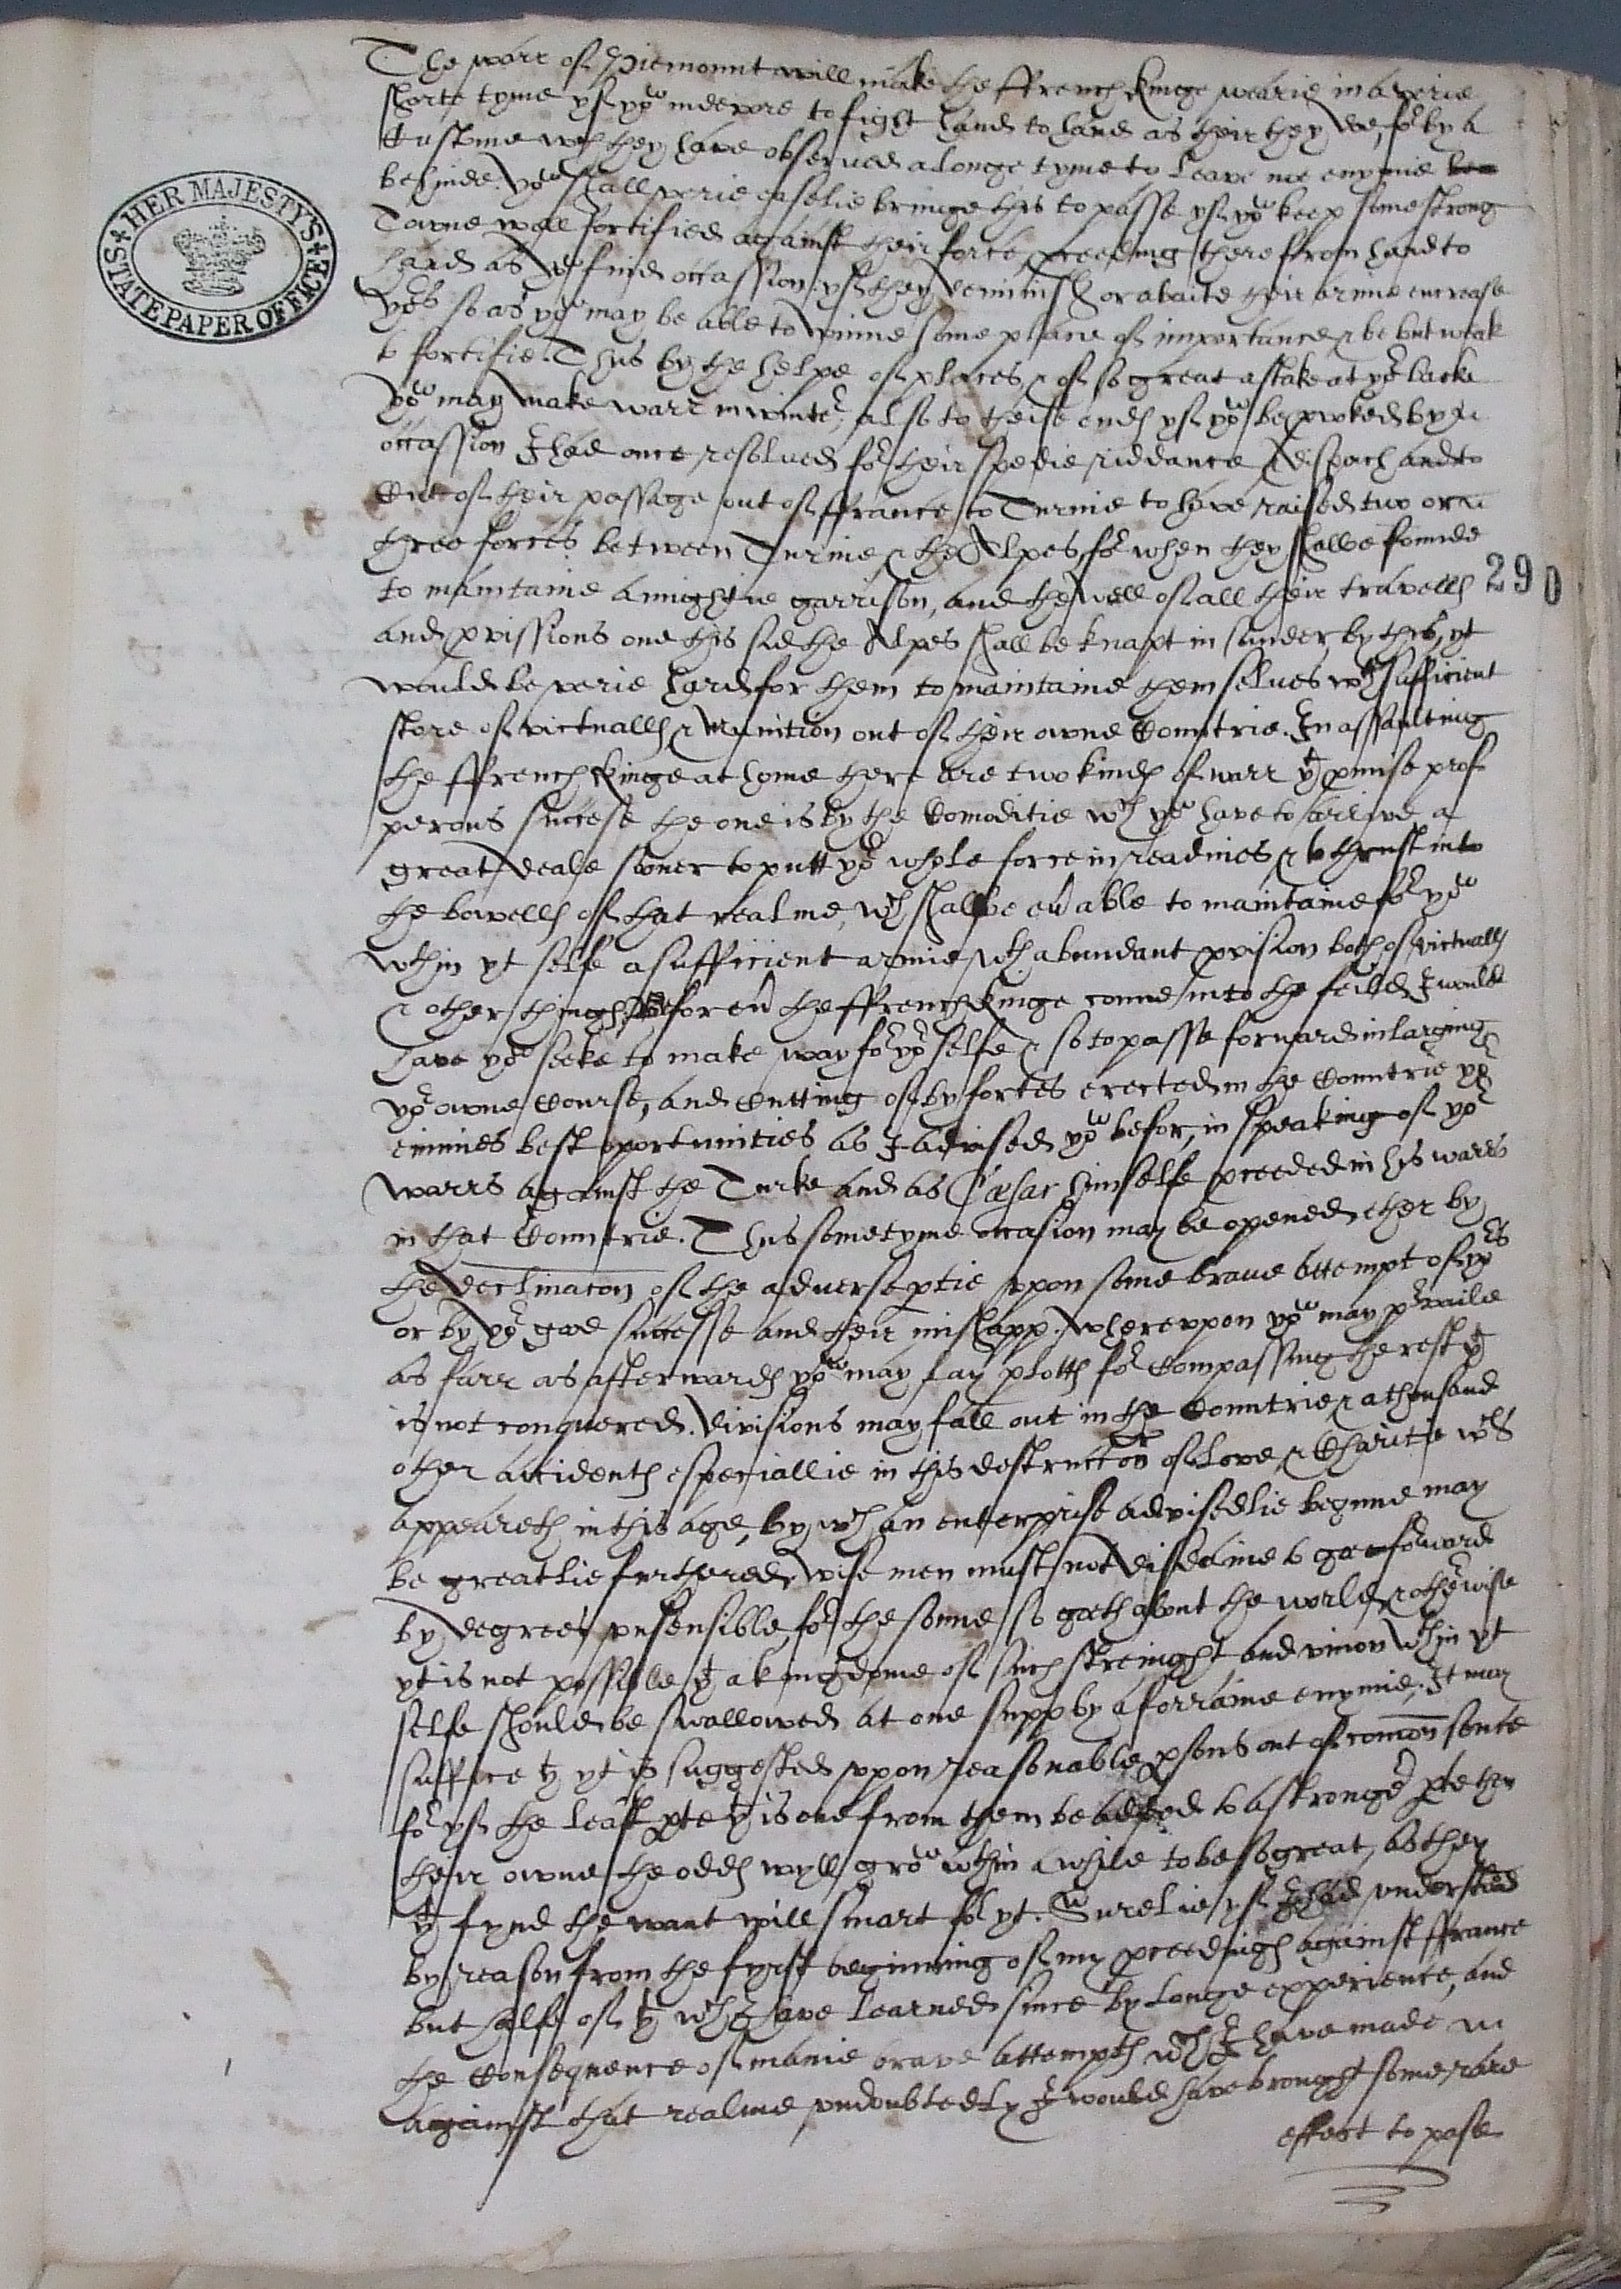 The warr of Piemount will make the ffrench kinge wearie in a verie
shorte tyme yf yow indevore to fight hand to hand as their they doe, for by a
Custome wch they have observed a longe tyme to leave no enymie
behinde. yow shall verie easelie bringe this to passe yf yow keep some strong
Towne well fortified against their force, proceeding there ffrom hand to
hand as yow find occassion, yf they deminish or abaite their armie encrease
yors so as yow may be able to winne some place of importance & be but weak
to fortifie. Thus by the helpe of places & of so great a stake at yor backe
yow may make warr in winter, also to theise ends yf yow be provoked by
occassion I had once resolved for their spedie riddance & dispach and to
Cut of their passage out of ffrance to Turine to have raised two or
three fortes between Turine & the Alpes, for when they shalbe founde
to maintaine a mightie garrison, and the well of all their travells
and provissions one this sid the Alpes shall be knapt in sunder by this, yt
would be verie hard for them to maintaine themselves wth sufficient
store of victualls & Munition out of their owne Countrie. In assaulting
the ffrench kinge at home there are two kinds of warr yt promise pros
perous successe the one is by the Comoditie wch yow have to arrive a
great deale sooner to putt yor whole force in readines & to thrust into
the bowells of that realme, wch shalbe ever able to maintaine for yow
wthin yt selfe a sufficient armie wth abundant provision both of victualls
& other things, before ever the ffrench kinge come into the feild I would
have yow seeke to make way for yor selfe & so to passe forward inlarging
yor owne Course, and Cutting of by fortes erected in the Countrie yor
enimies best oportunities as I advised yow befor, in speaking of yor
warrs against the Turke and as Cæsar himselfe proceeded in his warrs
in that Countrie. Thus sometyme occasion may be opened ether by
the declinacon of the adverse ptie vpon some brave attempt of yors
or by yor good successe and their mishapp. wherevpon yow may prvaile
as farr as afterwards yow may lay plotts for Compassing the rest yt
is not conquered. Divisions may fall out in the Countrie & a thousand
other accidents especiallie in this destruction of Love & Charitie wch
appeareth in this age, by wch an enterprise advisedlie begunne may
be greatlie furthered, wise men must not disdaine to goe forward
by degrees vnsensible, for the sonne so goeth about the world, & otherwise
yt is not possible yt a kingdome of such streinght and vnion wthin yt
selfe should be swallowed at one supp by a forraine enymie, It may
suffice yt yt is suggested vpon reasonable psons out of comon sence
for yf the least pte yt is one from them be added to a stronger pte then
their owne the odds wyll grow wthin a while to be so great, as they
yt fynd the want will smart for yt. Surelie yf I had vnderstood
by reason from the fyrst beginning of my proceedings against ffrance
but halfe of yt wch I have learned since by longe experience, and
the Consequence of manie brave attempts wch I have made
against that realme, vndoubtedly I would have brought some rare
effect to passe
290
HER MAJESTY'S STATE PAPER OFFICE